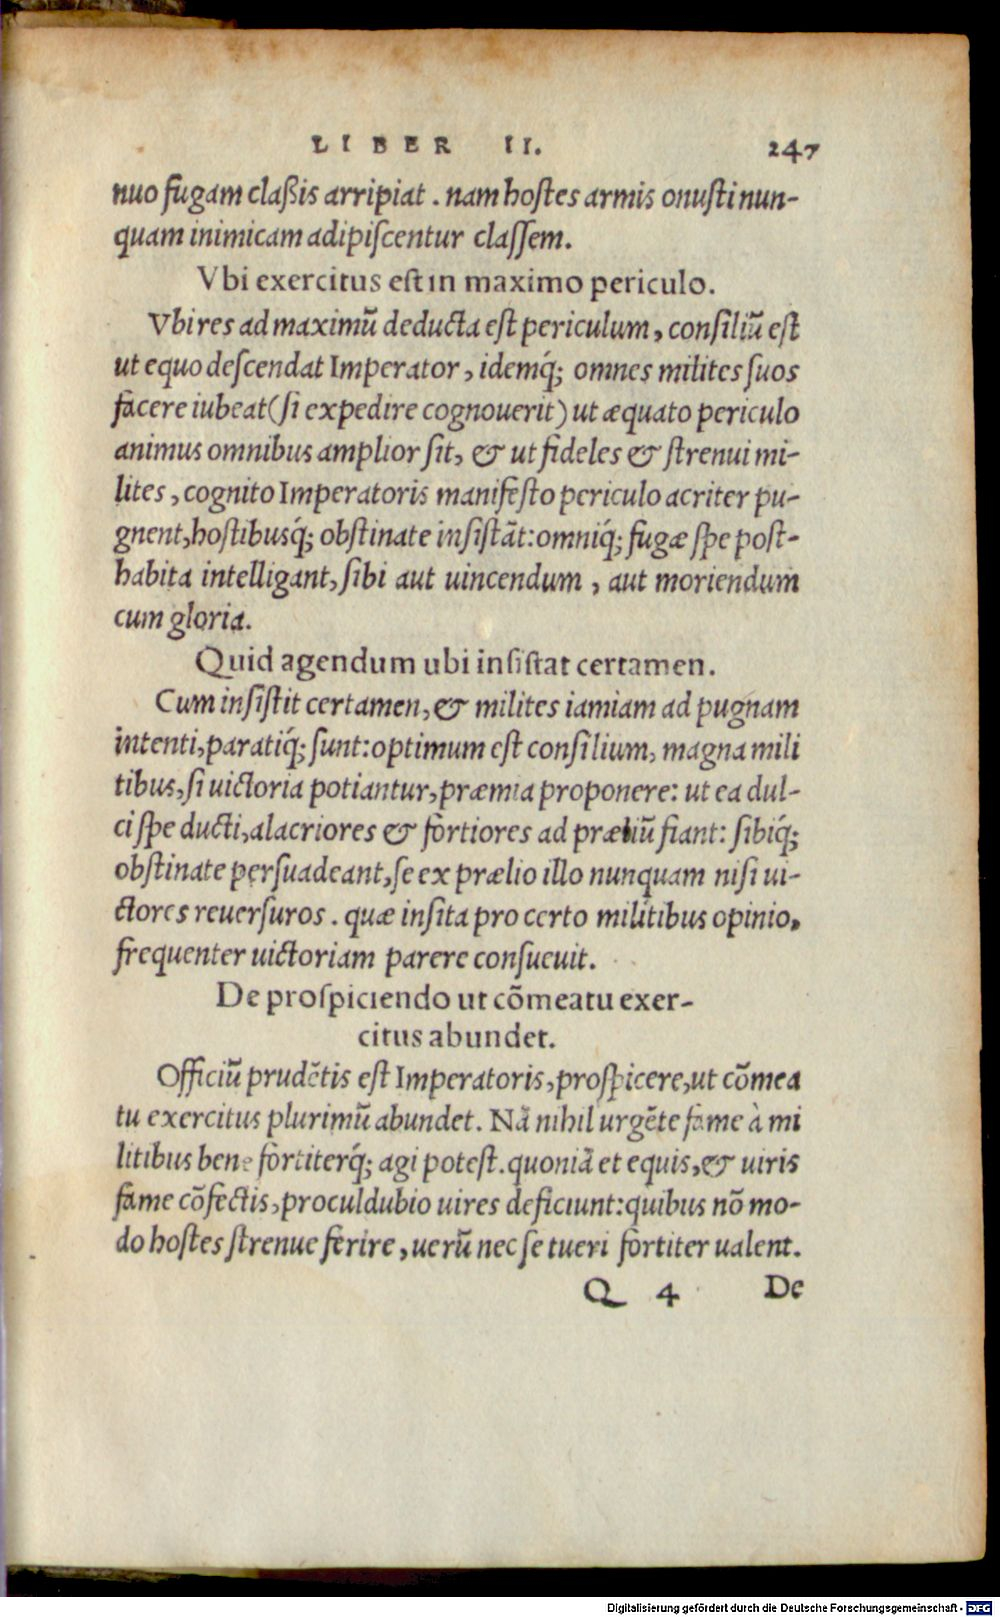 LIBER II. 247
nuo fugam claßis arripiat. nam hostes armis onusti nun-
quam inimicam adipiscentur classem.
Vbi exercitus est in maximo periculo.
Vbi res ad maximũ deducta est periculum, consiliũ est
ut equo descendat Imperator, idemq́; omnes milites suos
facere iubeat (si expedire cognouerit) ut æquato periculo
animus omnibus amplior sit, & ut fideles & strenui mi-
lites, cognito Imperatoris manifesto periculo acriter pu-
gnent, hostibusq́; obstinate insistãt: omniq́; fugæ spe post-
habita intelligant, sibi aut uincendum, aut moriendum
cum gloria.
Quid agendum ubi insistat certamen.
Cum insistit certamen, & milites iamiam ad pugnam
intenti, paratiq́; sunt: optimum est consilium, magna mili
tibus, si uictoria potiantur, præmia proponere: ut ea dul-
ci spe ducti, alacriores & fortiores ad præliũ fiant: sibiq́;
obstinate persuadeant, se ex prælio illo nunquam nisi ui-
ctores reuersuros. quæ insita pro certo militibus opinio,
frequenter uictoriam parere consueuit.
De prospiciendo ut cõmeatu exer-
citus abundet.
Officiũ prudẽtis est Imperatoris, prospicere, ut cõmea
tu exercitus plurimũ abundet. Nã nihil urgẽte fame à mi
litibus bene fortiterq́; agi potest. quoniã et equis, & uiris
fame cõfectis, proculdubio uires deficiunt: quibus nõ mo-
do hostes strenue ferire, uerũ nec se tueri fortiter ualent.
Q 4 De
Digitalisierung gefördert durch die Deutsche Forschungsgemeinschaft - DFG